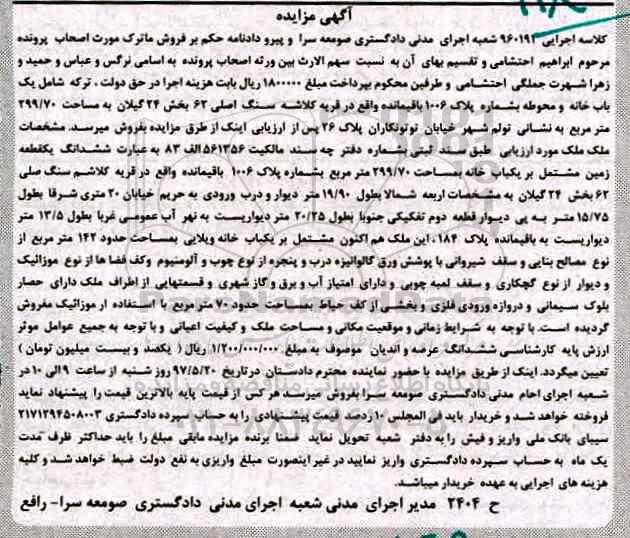 آگهی مزایده
کلاسه اجرایی ۹۶۰۱۹۲ شعبه اجرای مدنی دادگستری صومعه سرا و پیرو دادنامه حکم بر فروش ماترک مورث اصحاب پرونده
مرحوم ابراهیم احتشامی و تقسیم بهای آن به نسبت سهم الارث بین ورثه اصحاب پرونده به اسامی نرگس و عباس و حمید و
زهرا شهرت جملگی احتشامی و طرفین محکوم بپرداخت مبلغ ۱۸۰۰۰۰۰ ریال بابت هزینه اجرا در حق دولت . ترکه شامل یک
باب خانه و محوطه بشماره پلاک ۱۰۰۶ باقیمانده واقع در قریه کلاشه سنگ اصلی ۶۲ بخش ۲۴ گیلان به مساحت ۲۹۹/۷۰
متر مربع به نشانی تولم شهر خیابان توتونکاران پلاک ۲۶ پس از ارزیابی اینک از طرق مزایده بفروش میرسد. مشخصات
ملک ملک مورد ارزیابی طبق سند ثبتی بشماره دفتر چه سند مالکیت ۵۶۱۳۵۶ الف ۸۳ به عبارت ششدانگ یکقطعه
زمین مشتمل بر یکباب خانه بمساحت ۲۹۹/۷۰ متر مربع بشماره پلاک ۱۰۰۶ باقیمانده واقع در قریه کلاشم سنگ صلی
۶۲ بخش ۲۴ گیلان به مشخصات اربعه شمالا بطول ۱۹/۹۰ متر دیوار و درب ورودی به حریم خیابان ۲۰ متری شرقا بطول
۱۵/۷۵ متر به پی دیوار قطعه دوم تفکیکی جنوبا بطول ۲۰/۲۵ متر دیواریست به نهر آب عمومی غربا بطول ۱۳/۵ متر
دیواریست به باقیمانده پلاک ۱۸۴. این ملک هم اکنون مشتمل بر یکباب خانه ویلایی بمساحت حدود ۱۴۲ متر مربع از
نوع مصالح بنایی و سقف شیروانی با پوشش ورق گالوانیزه درب و پنجره از نوع چوب و آلومنیوم وکف فضا ها از نوع موزائیک
و دیوار از نوع گچکاری و سقف لمبه چوبی و دارای امتیاز آب و برق و گاز شهری و قسمتهایی از اطراف ملک دارای حصار
بلوک سیمانی و دروازه ورودی فلزی و بخشی از کف حیاط بمساحت حدود ۷۰ متر مربع با استفاده از موزائیک مفروش
گردیده است. با توجه به شرایط زمانی و موقعیت مکانی و مساحت ملک و کیفیت اعیانی و با توجه به جمیع عوامل موثر
ارزش پایه کارشناسی ششدانگ عرصه و اندیان موصوف به مبلغ ۱/۲۰۰/۰۰۰/۰۰۰ ریال ( یکصد و بیست میلیون تومان )
تعیین میگردد. اینک از طریق مزایده با حضور نماینده محترم دادستان در تاریخ ۹۷/۵/۲۰ روز شنبه از ساعت ۹ الی ۱۰ در
شعبه اجرای احام مدنی دادگستری صومعه سرا بفروش میرسد هر کس از قیمت پایه بالاترین قیمت را پیشنهاد نماید
فروخته خواهد شد و خریدار باید فی المجلس ۱۰ درصد قیمت پیشنهادی را به حساب سپرده دادگستری ۲۱۷۱۲۹۴۵۰۸۰۰۳
سیبای بانک ملی واریز و فیش را به دفتر شعبه تحویل نماید ضمنا برنده مزایده مابقی مبلغ را باید حداکثر ظرف مدت
یک ماه به حساب سپرده دادگستری واریز نمایید در غیر اینصورت مبلغ واریزی به نفع دولت ضبط خواهد شد و کلیه
هزینه های اجرایی به عهده خریدار میباشد.
ح ۲۴۰۴ مدیر اجرای مدنی شعبه اجرای مدنی دادگستری صومعه سرا- رافع